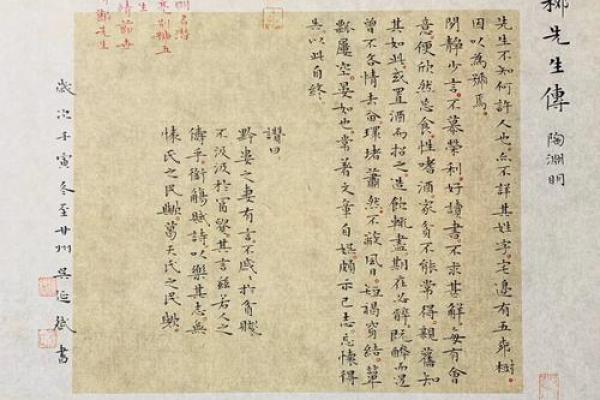 先生傳 陶淵明
先生不知何許人也。亦不詳其姓字。宅邊有五栁樹
因以為號焉。
閑静少言。不慕榮利。好讀書。不求甚解。每有會
意。便欣然忘食。性嗜酒。家貧不能常得。親舊知
其如此。或置酒而招之。造飲輒盡。期在必醉。既醉而退
曾不吝情去留。環堵蕭然。不蔽風日。短褐穿結。簞
瓢屢空。晏如也。常著文章自娛。頗示己志。忘懷得
失。以此自終。
讚曰
黔婁之妻有言。不戚戚於貧賤。
不汲汲於富貴。其言茲若人之
儔乎。銜觴賦詩。以樂其志。無
懷氏之民歟。葛天氏之民歟。
號五
先生
歲次壬寅冬至甘州吳延斌書